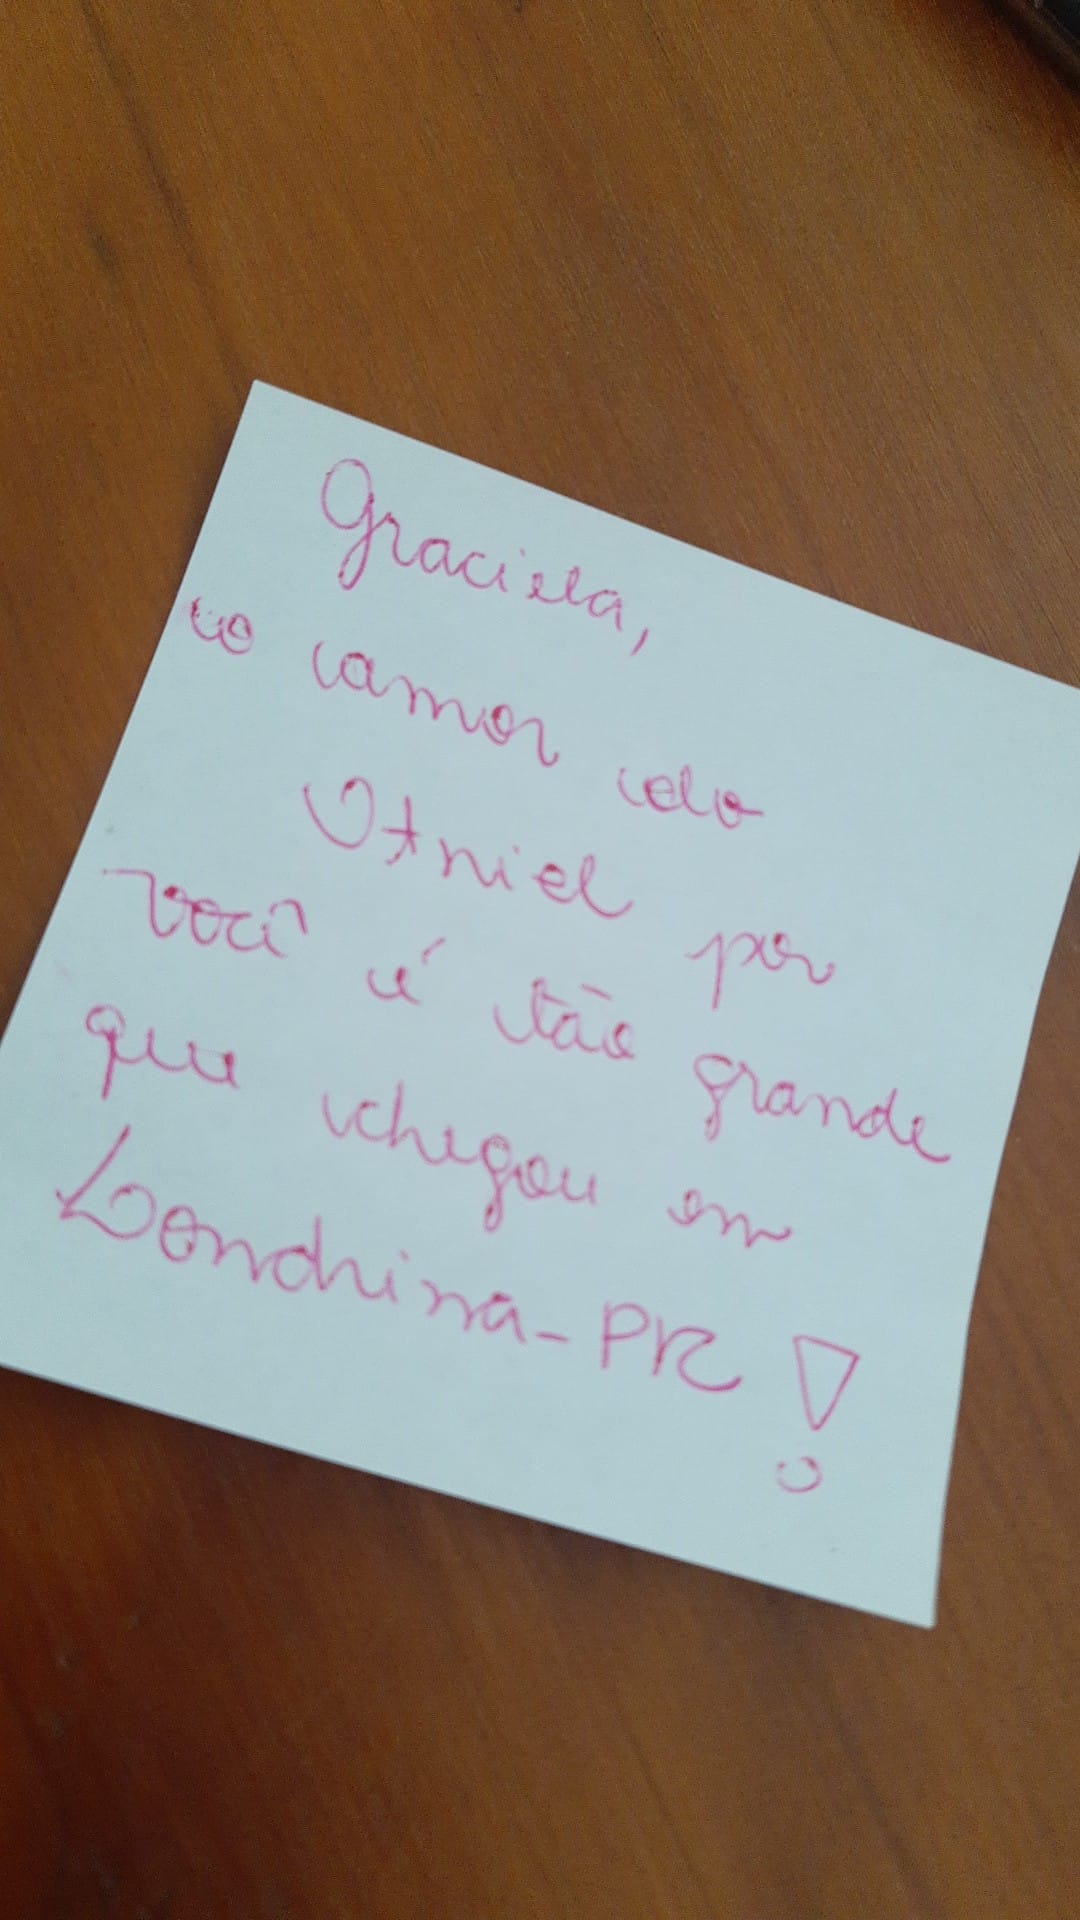 Graciela,
o amor do
Otniel por
você é tão grande
que chegou em
Londrina-PR!